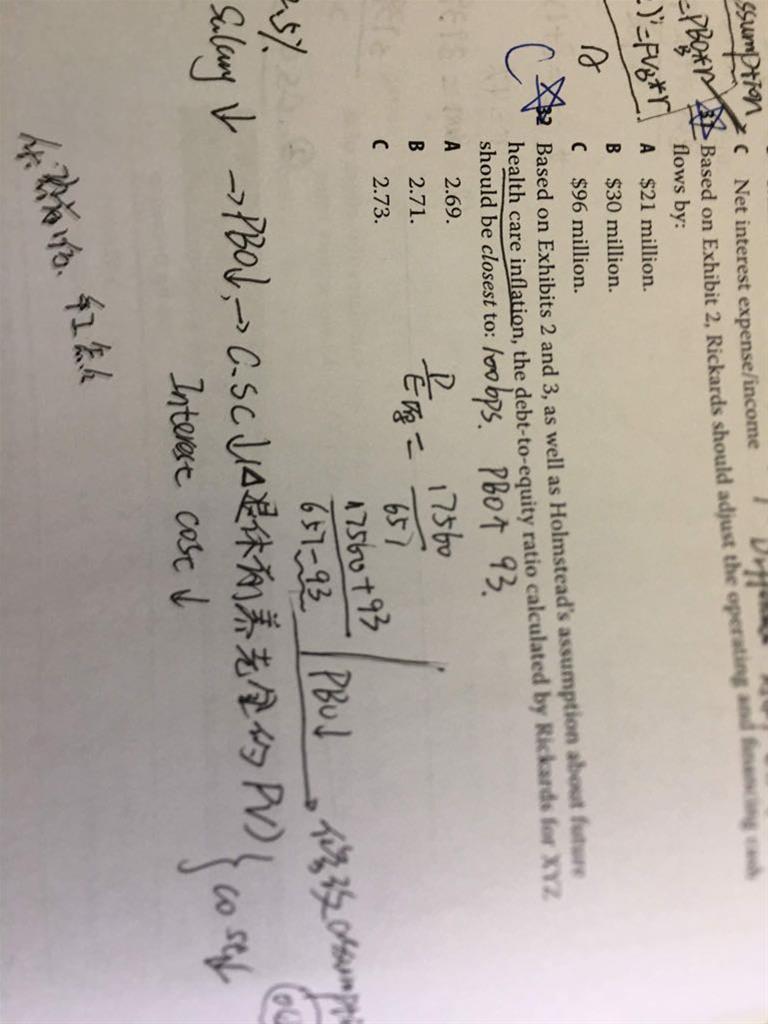 ssumption
=PBO*r
)'=FVB*r
C Net interest expense/income
37 Based on Exhibit 2, Rickards should adjust the operating and financing cash
flows by:
A $21 million.
B $30 million.
C $96 million.
C 32 Based on Exhibits 2 and 3, as well as Holmstead's assumption about future
health care inflation, the debt-to-equity ratio calculated by Rickards for XYZ
should be closest to: 100bps. PBO↑ 93.
A 2.69.
B 2.71.
C 2.73.
D/E = 17560/657
17560+93/657-93
PBO↓
修改 assumpti
2.5%
Salary ↓ → PBO↓, → C.SC↓(△退休前养老金的PV) } cost↓
Interest cost ↓